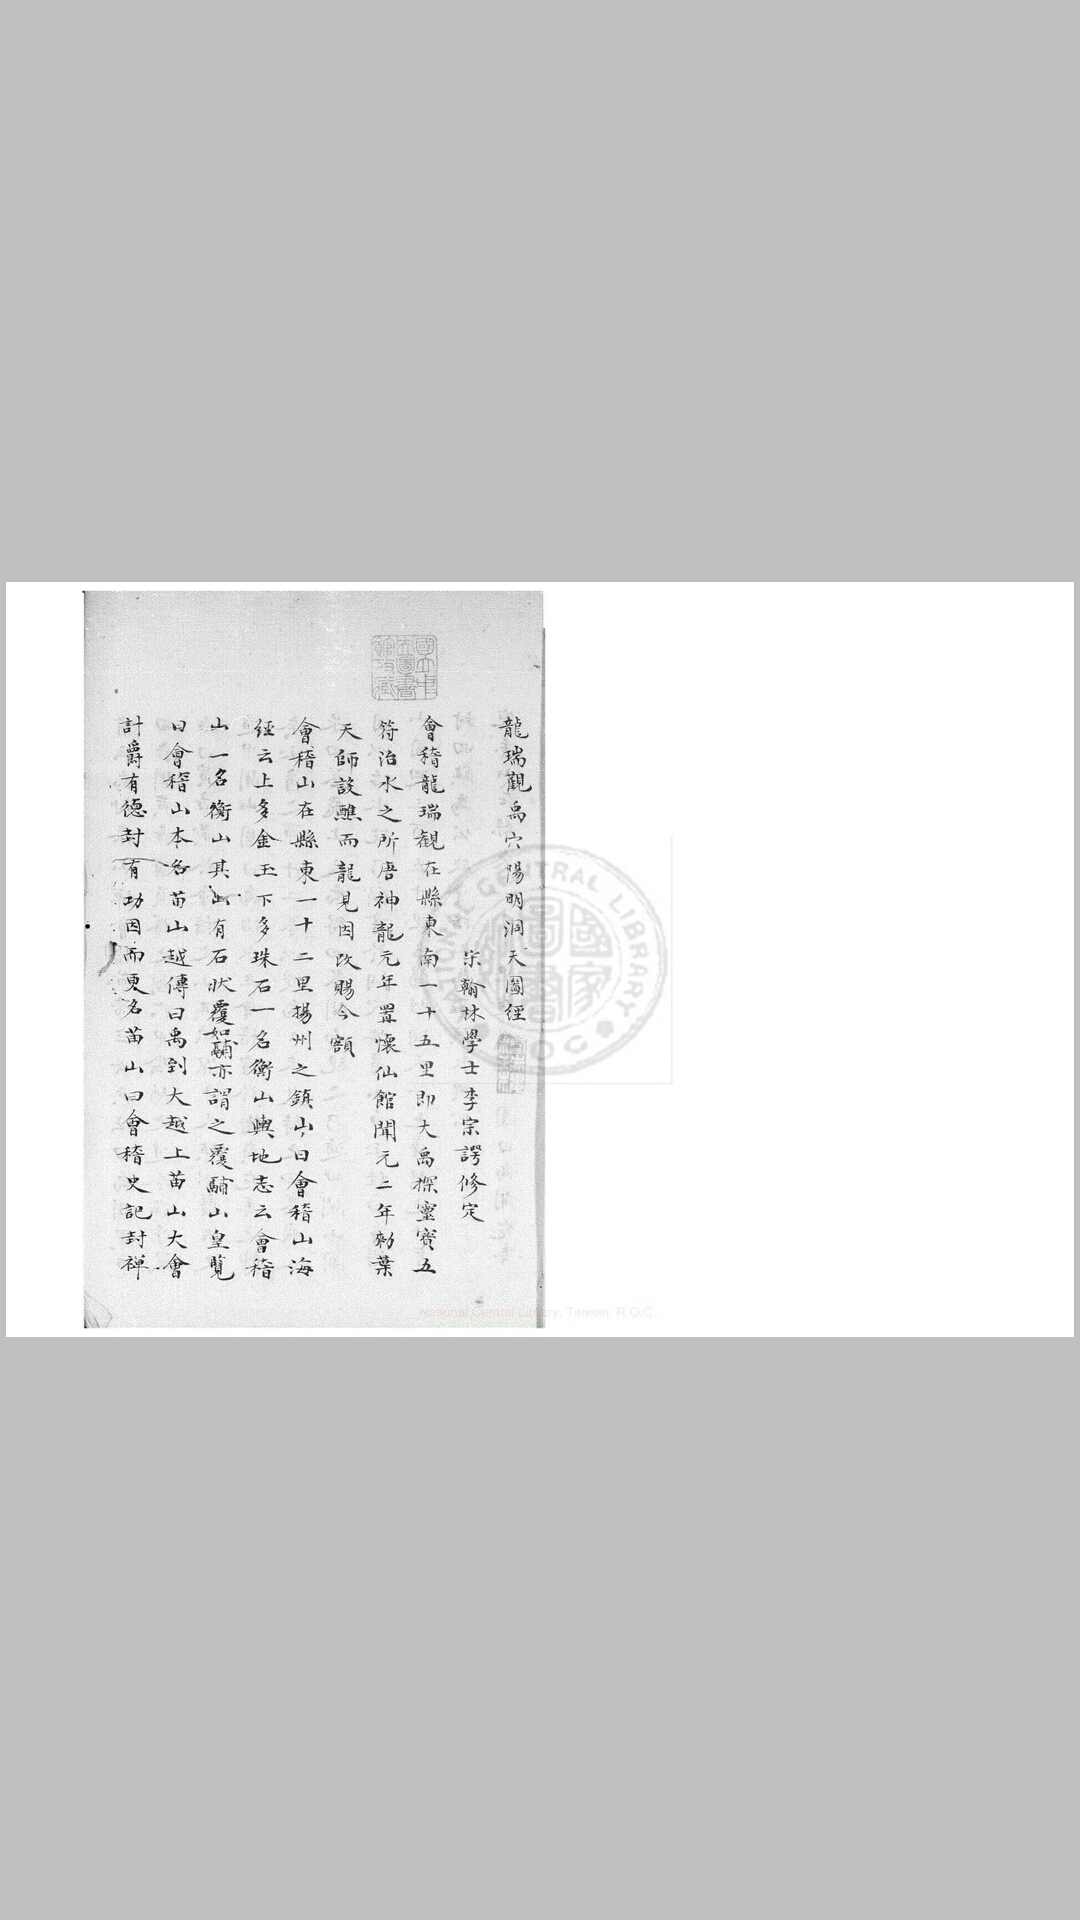 龍瑞觀禹穴陽明洞天圖經
宋翰林學士李宗諤修定
會稽龍瑞觀在縣東南一十五里即大禹探靈寶五
符治水之所唐神龍元年置懷仙館開元二年勑葉
天師設醮而龍見因改賜今額
會稽山在縣東一十二里揚州之鎮山曰會稽山海
經云上多金玉下多珠石一名衡山輿地志云會稽
山一名衡山其山有石狀覆如鬴亦謂之覆鬴山皇覽
曰會稽山本名苗山越傳曰禹到大越上苗山大會
計爵有德封有功因而更名苗山曰會稽史記封禅
國立中央圖書館收藏
NATIONAL CENTRAL LIBRARY
R.O.C.
國家圖書館
National Central Library, Taiwan, R.O.C.